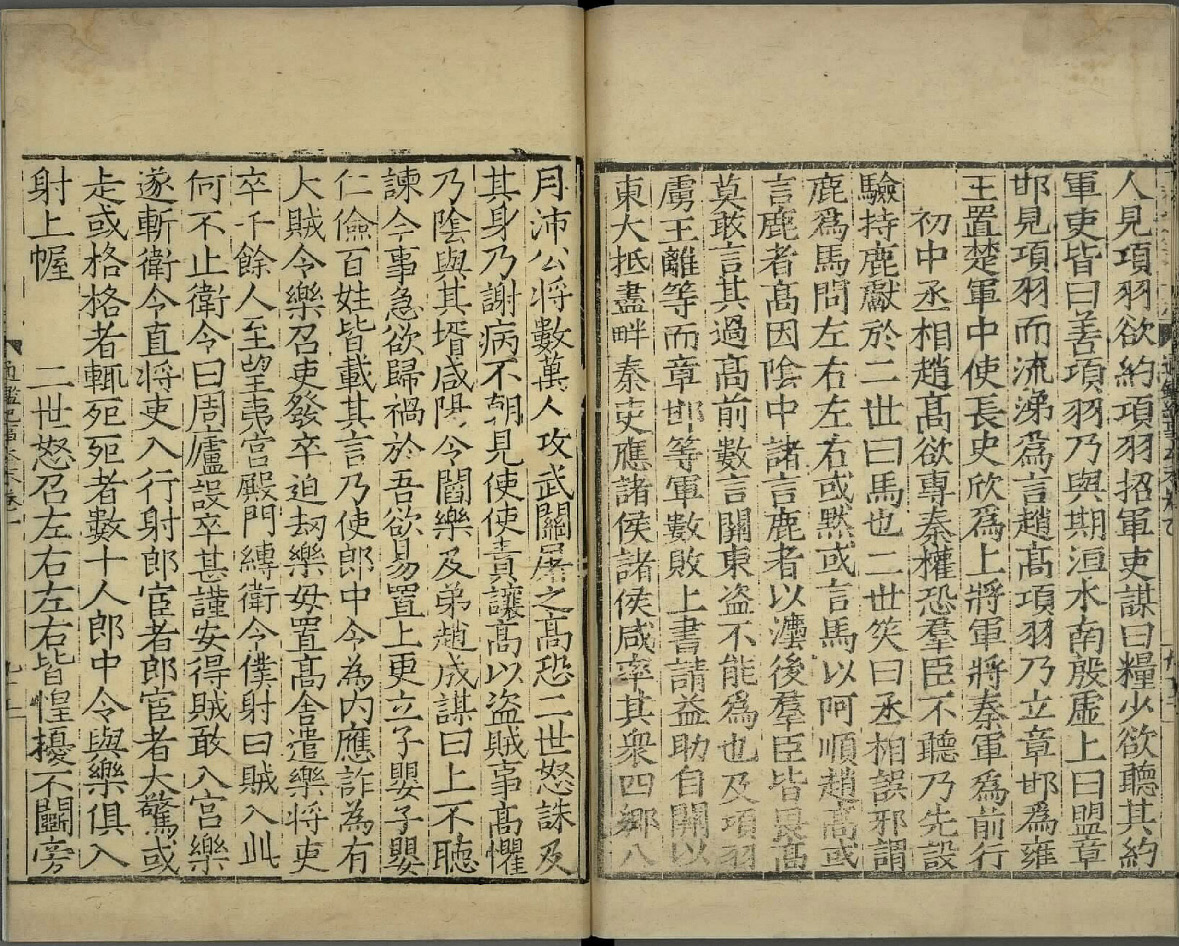 人見項羽欲約項羽招軍吏謀曰糧少欲聽其約
軍吏皆曰善項羽乃與期洹水南殷虛上曰盟章
邯見項羽而流涕爲言趙髙項羽乃立章邯爲雍
王置楚軍中使長史欣爲上將軍將秦軍爲前行
初中丞相趙髙欲專秦權恐羣臣不聽乃先設
驗持鹿獻於二世曰馬也二世笑曰丞相誤邪謂
鹿爲馬問左右左右或默或言馬以阿順趙髙或
言鹿者髙因隂中諸言鹿者以灋後羣臣皆畏髙
莫敢言其過髙前數言關東盗不能爲也及項羽
虜王離等而章邯等軍數敗上書請益助自關以
東大抵盡畔秦吏應諸侯諸侯咸率其衆西鄉八
月沛公將數萬人攻武關屠之髙恐二世怒誅及
其身乃謝病不朝見使使責讓髙以盗賊事髙懼
乃隂與其壻咸陽令閻樂及弟趙成謀曰上不聴
諫今事急欲歸禍於吾欲易置上更立子嬰子嬰
仁儉百姓皆載其言乃使郎中令為内應詐為有
大賊令樂召吏發卒迫刼樂母置髙舍遣樂將吏
卒千餘人至望夷宫殿門縛衛令僕射曰賊入此
何不止衛令曰周廬設卒甚謹安得賊敢入宫樂
遂斬衛令直將吏入行射郎宦者郎宦者大驚或
走或格格者輒死死者數十人郎中令與樂俱入
射上幄 二世怒召左右左右皆惶擾不鬭旁